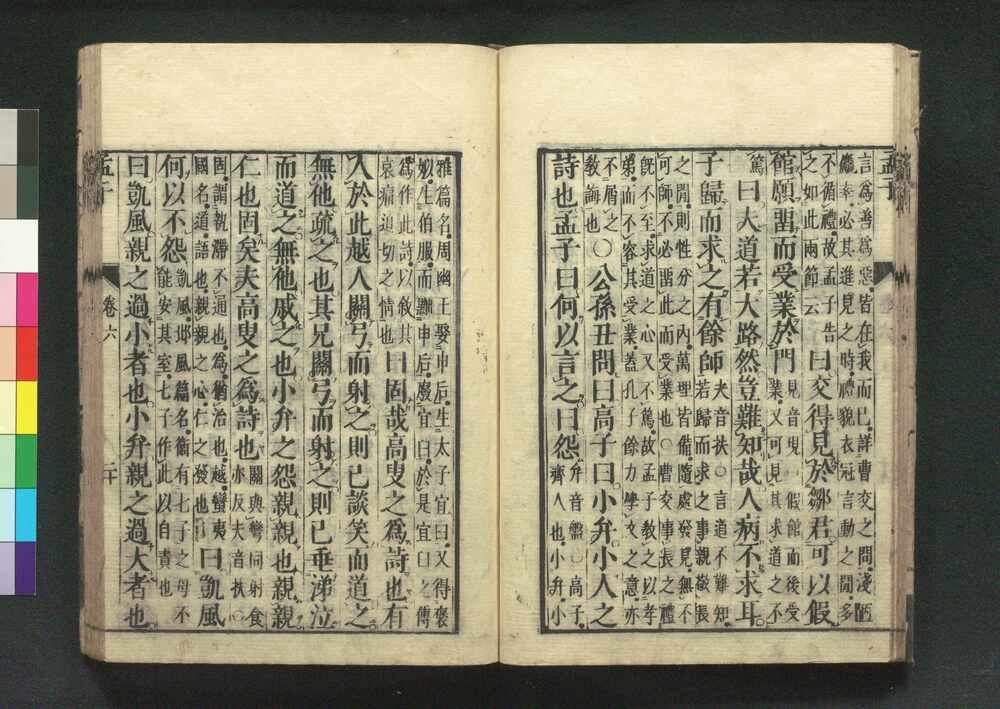 孟子
言爲善爲惡皆在我而已詳曹交之問淺陋
麤率必其進見之時禮貌衣冠言動之間多
不循禮故孟子告
之如此兩節云
曰交得見於鄒君可以假
館願留而受業於門
見音現 假館而後受
業又可見其求道之不
篤
曰夫道若大路然豈難知哉人病不求耳
子歸而求之有餘師
夫音扶○言道不難知
若歸而求之事親敬長
之間則性分之內萬理皆備隨處發見無不
可師不必留此而受業也○曹交事長之禮
旣不至求道之心又不篤故孟子教之以孝
弟而不容其受業蓋孔子餘力學文之意亦
不屑之
教誨也
○公孫丑問曰高子曰小弁小人之
詩也孟子曰何以言之曰怨
弁音盤○高子
齊人也小弁小
雅篇名周幽王娶申后生太子宜臼又得褒
姒生伯服而黜申后廢宜臼於是宜臼之傅
爲作此詩以敘其
哀痛迫切之情也
曰固哉高叟之爲詩也有
人於此越人關弓而射之則已談笑而道之
無他疏之也其兄關弓而射之則已垂涕泣
而道之無他戚之也小弁之怨親親也親親
仁也固矣夫高叟之爲詩也
關與彎同射食
亦反夫音扶○
固謂執滯不通也爲猶治也越蠻夷
國名道語也親親之心仁之發也
曰凱風
何以不怨
凱風邶風篇名衞有七子之母不
能安其室七子作此以自責也
曰凱風親之過小者也小弁親之過大者也
孟子
卷六
二十